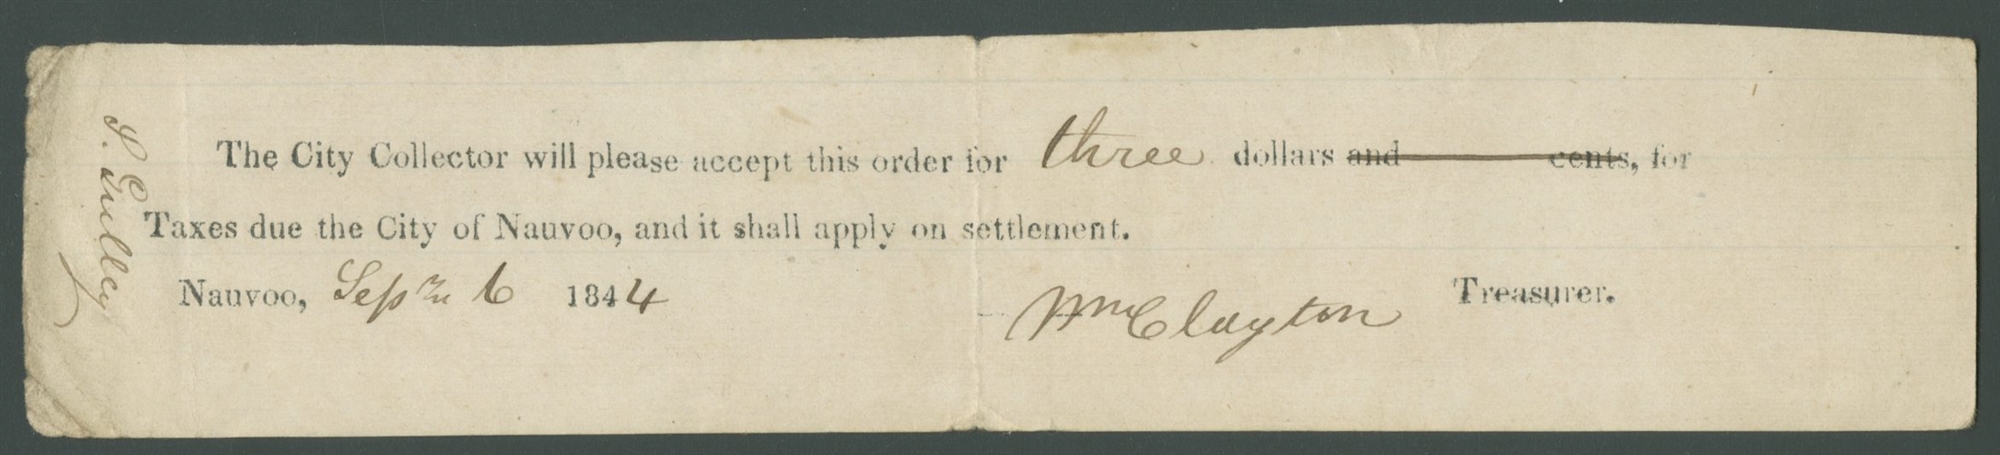 The City Collector will please accept this order for three dollars and cents, for
Taxes due the City of Nauvoo, and it shall apply on settlement.
Nauvoo, Sepr 6 1844 Wm Clayton Treasurer.
Gulley